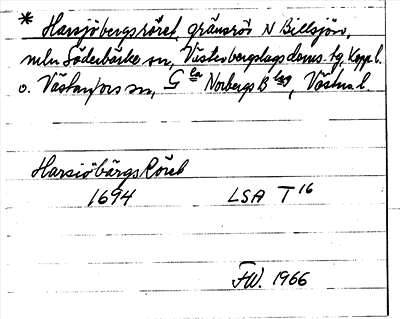 * Harsjöbergsröret, gränsrös N Billsjön,
mln Söderbärke sn, Västerbergslags doms. tg, Kopp. l.
o. Västanfors sn, Gla Norbergs Blag, Västm. l.
Harsiöbärgs Röret
1694 LSA T16
FW. 1966